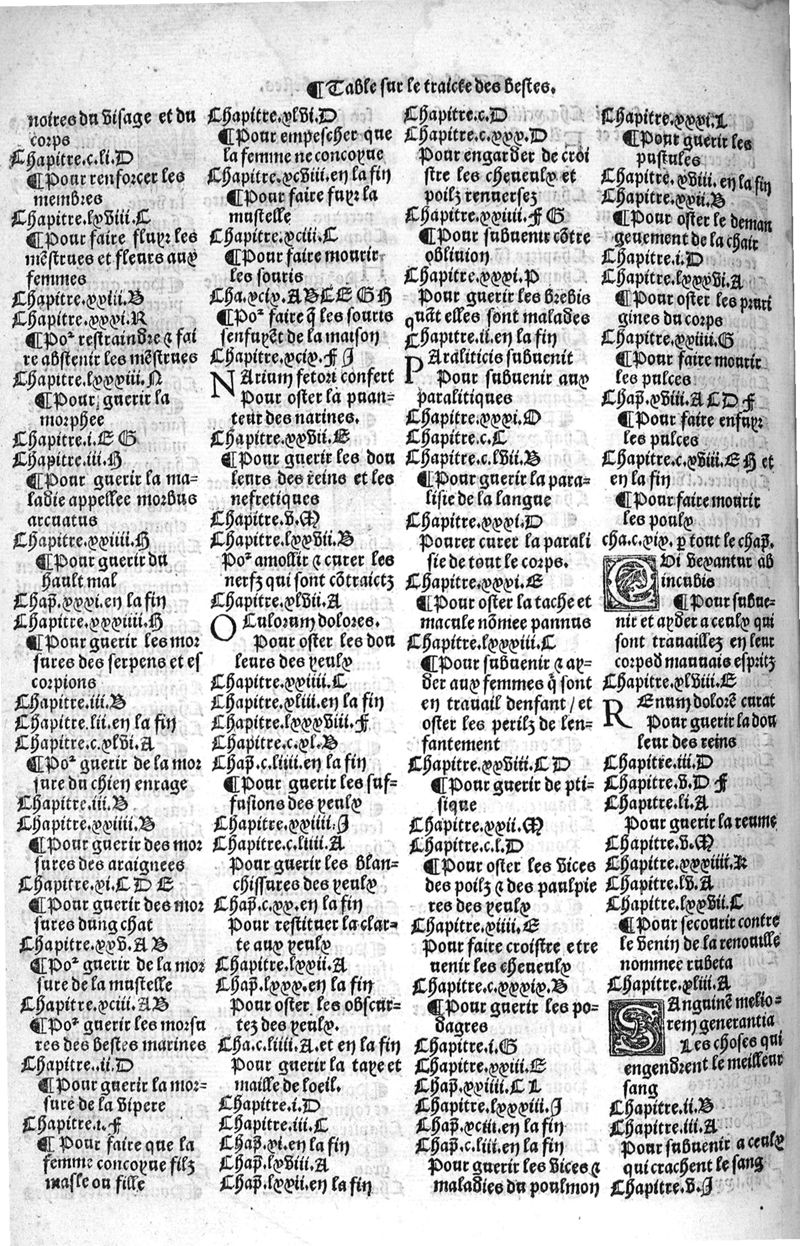 ¶Table sur le traicte des bestes.
noires du visage et du
corps
Chapitre.c.li.D
¶Pour renforcer les
membres
Chapitre.lxviii.C
¶Pour faire fluyr les
mēstrues et fleurs aux
femmes
Chapitre.xxiii.B
Chapitre.xxxi.R
¶Poᵣ restraindre ⁊ fai
re abstenir les mēstrues
Chapitre.lxxxiii.N
¶Pour guerir la
morphee
Chapitre.i.E G
Chapitre.iii.H
¶Pour guerir la ma-
ladie appellee morbus
arcuatus
Chapitre.xxiiii.H
¶Pour guerir du
hault mal
Chap̄.xxxi.en la fin
Chapitre.xxxiiii.H
¶Pour guerir les mor
sures des serpens et es
corpions
Chapitre.iii.B
Chapitre.lii.en la fin
Chapitre.c.xlvi.A
¶Poᵣ guerir de la mor
sure du chien enrage
Chapitre.iii.B
Chapitre.xxiiii.B
¶Pour guerir des mor
sures des araignees
Chapitre.xi.C D E
¶Pour guerir des mor
sures dung chat
Chapitre.xxv.A B
¶Poᵣ guerir de la mor
sure de la mustelle
Chapitre.xciii.A B
¶Poᵣ guerir les morsu
res des bestes marines
Chapitre..ii.D
¶Pour guerir la mor-
sure de la vipere
Chapitre.i.F
¶Pour faire que la
femme concoyue filz
masle ou fille
Chapitre.xlvi.D
¶Pour empescher que
la femme ne concoyue
Chapitre.xcviii.en la fin
¶Pour faire fuyr la
mustelle
Chapitre.xciii.C
¶Pour faire mourir
les souris
Cha.xcix.A B C E G H
¶Poᵣ faire q̄ les souris
senfuyēt de la maison
Chapitre.xcix.F I
NArium fetori confert
Pour oster la puan-
teur des narines.
Chapitre.xxvii.E
¶Pour guerir les dou
leurs des reins et les
nefretiques
Chapitre.v.M
Chapitre.lxxvii.B
Poᵣ amollir ⁊ curer les
nerfz qui sont cōtraictz
Chapitre.xlvii.A
OCulorum dolores.
Pour oster les dou
leurs des yeulx
Chapitre.xxiiii.C
Chapitre.xliii.en la fin
Chapitre.lxxxviii.F
Chapitre.c.xl.B
Chap̄.c.liiii.en la fin
¶Pour guerir les suf-
fusions des yeulx
Chapitre.xxiiii.I
Chapitre.c.liiii.A
Pour guerir les blan-
chissures des yeulx
Chap̄.c.xx.en la fin
Pour restituer la clar-
te aux yeulx
Chapitre.lxxii.A
Chap̄.lxxx.en la fin
Pour oster les obscur-
tez des yeulx.
Cha.c.liiii.A.et en la fin
Pour guerir la taye et
maille de loeil.
Chapitre.i.D
Chapitre.iii.C
Chap̄.xi.en la fin
Chap̄.lxviii.A
Chap̄.lxxii.en la fin
Chapitre.c.D
Chapitre.c.xxx.D
Pour engarder de croi
stre les cheueulx et
poilz renuersez
Chapitre.xxiiii.F G
¶Pour subuenir cōtre
obliuion
Chapitre.xxxi.P
Pour guerir les brebis
quāt elles sont malades
Chapitre.ii.en la fin
PAraliticis subuenit
Pour subuenir aux
paralitiques
Chapitre.xxxi.O
Chapitre.c.C
Chapitre.c.lvii.B
¶Pour guerir la para-
lisie de la langue
Chapitre.xxxi.D
Pourer curer la parali
sie de tout le corps.
Chapitre.xxxi.E
¶Pour oster la tache et
macule nōmee pannus
Chapitre.lxxxiii.C
¶Pour subuenir ⁊ ay-
der aux femmes q̄ sont
en trauail denfant/et
oster les perilz de len-
fantement
Chapitre.xxviii.C D
¶Pour guerir de pti-
sique
Chapitre.xxii.M
Chapitre.c.l.D
¶Pour oster les vices
des poilz ⁊ des paulpie
res des yeulx
Chapitre.xiiii.E
Pour faire croistre etre
uenir les cheueulx
Chapitre.c.xxxix.B
¶Pour guerir les po-
dagres
Chapitre.i.G
Chapitre.xxiii.E
Chap̄.xxiiii.C L
Chapitre.lxxxiii.I
Chap̄.xciii.en la fin
Chap̄.c.liii.en la fin
Pour guerir les vices ⁊
maladies du poulmon
Chapitre.xxxi.L
¶Pour guerir les
pustules
Chapitre.xviii.en la fin
Chapitre.xxii.B
¶Pour oster le deman
geuement de la chair
Chapitre.i.D
Chapitre.lxxxvi.A
¶Pour oster les pruri
gines du corps
Chapitre.xxiiii.G
¶Pour faire mourir
les pulces
Chap̄.xviii.A C D F
¶Pour faire enfuyr
les pulces
Chapitre.c.xviii.E H et
en la fin
¶Pour faire mourir
les poulx
cha.c.xix.p̱ tout le chap̄.
QUi vexantur ab
incubis
¶Pour subue-
nir et ayder a ceulx qui
sont trauaillez en leur
corpsd mauuais espritz
Chapitre.xlviii.E
REnum dolorē curat
Pour guerir la dou
leur des reins
Chapitre.iii.D
Chapitre.v.D F
Chapitre.li.A
Pour guerir la reume
Chapitre.v.M
Chapitre.xxxiiii.K
Chapitre.lv.A
Chapitre.lxxvii.C
¶Pour secourir contre
le venin de la renouille
nommee rubeta
Chapitre.xliii.A
SAnguinē melio-
rem generantia
Les choses qui
engendrent le meilleur
sang
Chapitre.ii.B
Chapitre.iii.A
Pour subuenir a ceulx
qui crachent le sang
Chapitre.v.I